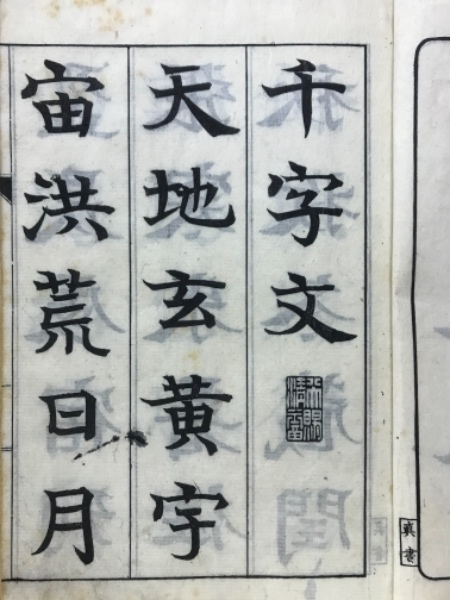 千字文
天地玄黄宇
宙洪荒日月
真書